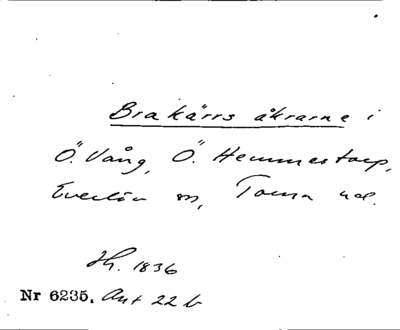 Brakärrs åkrarne i
Ö. Vång, Ö. Hemmestorp,
Everlöv sn, Torna hd.
Hh. 1836
Nr 6235. Ant 22 b